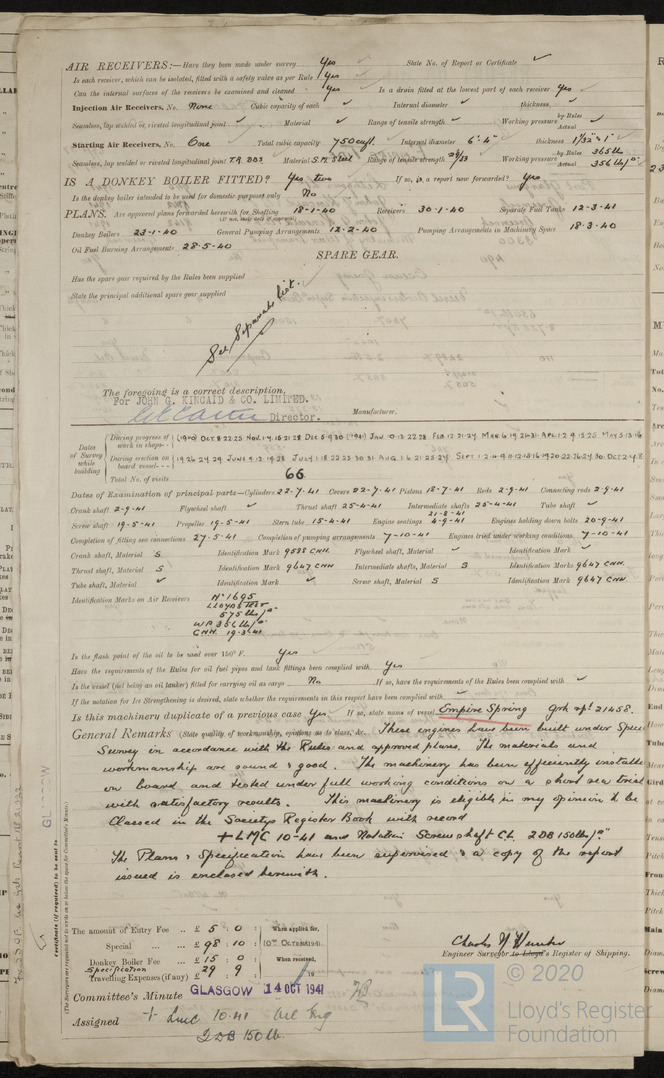 AIR RECEIVERS:—Have they been made under survey Yes State No. of Report or Certificate ✓
Is each receiver, which can be isolated, fitted with a safety valve as per Rule Yes
Can the internal surfaces of the receivers be examined and cleaned Yes Is a drain fitted at the lowest part of each receiver Yes
Injection Air Receivers, No. None Cubic capacity of each ✓ Internal diameter ✓ thickness ✓
Seamless, lap welded or riveted longitudinal joint ✓ Material ✓ Range of tensile strength ✓ Working pressure by Rules Actual ✓
Starting Air Receivers, No. One Total cubic capacity 750 cu ft. Internal diameter 6'-4" thickness 1 1/32" & 1"
Seamless, lap welded or riveted longitudinal joint T.R. DBS Material S.M. Steel Range of tensile strength Working pressure by Rules 365 lb Actual 356 lb/□"
IS A DONKEY BOILER FITTED? Yes two If so, is a report now forwarded? Yes
Is the donkey boiler intended to be used for domestic purposes only No
PLANS. Are approved plans forwarded herewith for Shafting 18-1-40 Receivers 30-1-40 Separate Fuel Tanks 12-3-41
(If not, state date of approval)
Donkey Boilers 23-1-40 General Pumping Arrangements 12-2-40 Pumping Arrangements in Machinery Space 18-3-40
Oil Fuel Burning Arrangements 28-5-40
SPARE GEAR.
Has the spare gear required by the Rules been supplied
State the principal additional spare gear supplied
See Separate list.
The foregoing is a correct description,
For JOHN G. KINCAID & CO. LIMITED.
Director. Manufacturer.
Dates of Survey while building
During progress of work in shops - - (1940) OCT 8.22.25 NOV. 1.4.15.21.28 DEC 5.9.30 (1941) JAN 10.13.22.28 FEB 12.21.24 MAR 6.19.21.31 APL 1.2.9.15.25 MAY 5.13.16
During erection on board vessel - - - 19.26.24.29 JUNE 9.12.19.28 JULY 1.18.22.25.30.31 AUG. 1.6.21.28.24 SEPT 1.2.4.9.11.12.15.16.19.20.22.26.24.30 OCT 2.4.8
Total No. of visits 66
Dates of Examination of principal parts—Cylinders 22-7-41 Covers 22-7-41 Pistons 18-7-41 Rods 2-9-41 Connecting rods 2-9-41
Crank shaft 2-9-41 Flywheel shaft ✓ Thrust shaft 25-4-41 Intermediate shafts 25-4-41 Tube shaft ✓
Screw shaft 19-5-41 Propeller 19-5-41 Stern tube 15-4-41 Engine seatings 21-8-41 4-9-41 Engines holding down bolts 20-9-41
Completion of fitting sea connections 27-5-41 Completion of pumping arrangements 7-10-41 Engines tried under working conditions 7-10-41
Crank shaft, Material S Identification Mark 9588 CHH. Flywheel shaft, Material ✓ Identification Mark ✓
Thrust shaft, Material S Identification Mark 9647 CHH Intermediate shafts, Material S Identification Marks 9647 CHH.
Tube shaft, Material ✓ Identification Mark ✓ Screw shaft, Material S Identification Mark 9647 CHH.
Identification Marks on Air Receivers No 1695
LLOYDS TEST
575 lb/□"
WP 356 lb/□"
CHH 19-3-41
Is the flash point of the oil to be used over 150°F. Yes
Have the requirements of the Rules for oil fuel pipes and tank fittings been complied with Yes
Is the vessel (not being an oil tanker) fitted for carrying oil as cargo No If so, have the requirements of the Rules been complied with ✓
If the notation for Ice Strengthening is desired, state whether the requirements in this respect have been complied with ✓
Is this machinery duplicate of a previous case Yes If so, state name of vessel Empire Spring Grk rpt 21458.
General Remarks (State quality of workmanship, opinions as to class, &c. These engines have been built under Special
Survey in accordance with the Rules and approved plans. The materials and
workmanship are sound & good. The machinery has been efficiently installed
on board and tested under full working conditions on a short sea trial
with satisfactory results. This machinery is eligible in my opinion to be
Classed in the Societys Register Book with record
+LMC 10-41 and Notation Screwshaft CL 2DB 150lb/□"
The Plans & Specification have been supervised & a copy of the report
issued is enclosed herewith.
The amount of Entry Fee .. £ 5 : 0 : When applied for,
Special ... .. £ 98 : 10 : 10th OCTOBER 1941.
Donkey Boiler Fee ... £ 15 : 0 : When received,
Specification
Travelling Expenses (if any) £ 29 : 9 : 19
Charles N Hunter
Engineer Surveyor to Lloyd's Register of Shipping.
Committee's Minute GLASGOW 14 OCT 1941
Assigned + LMC 10.41 Oil Eng
2DB 150 lb.
© 2020
LR
Lloyd's Register
Foundation